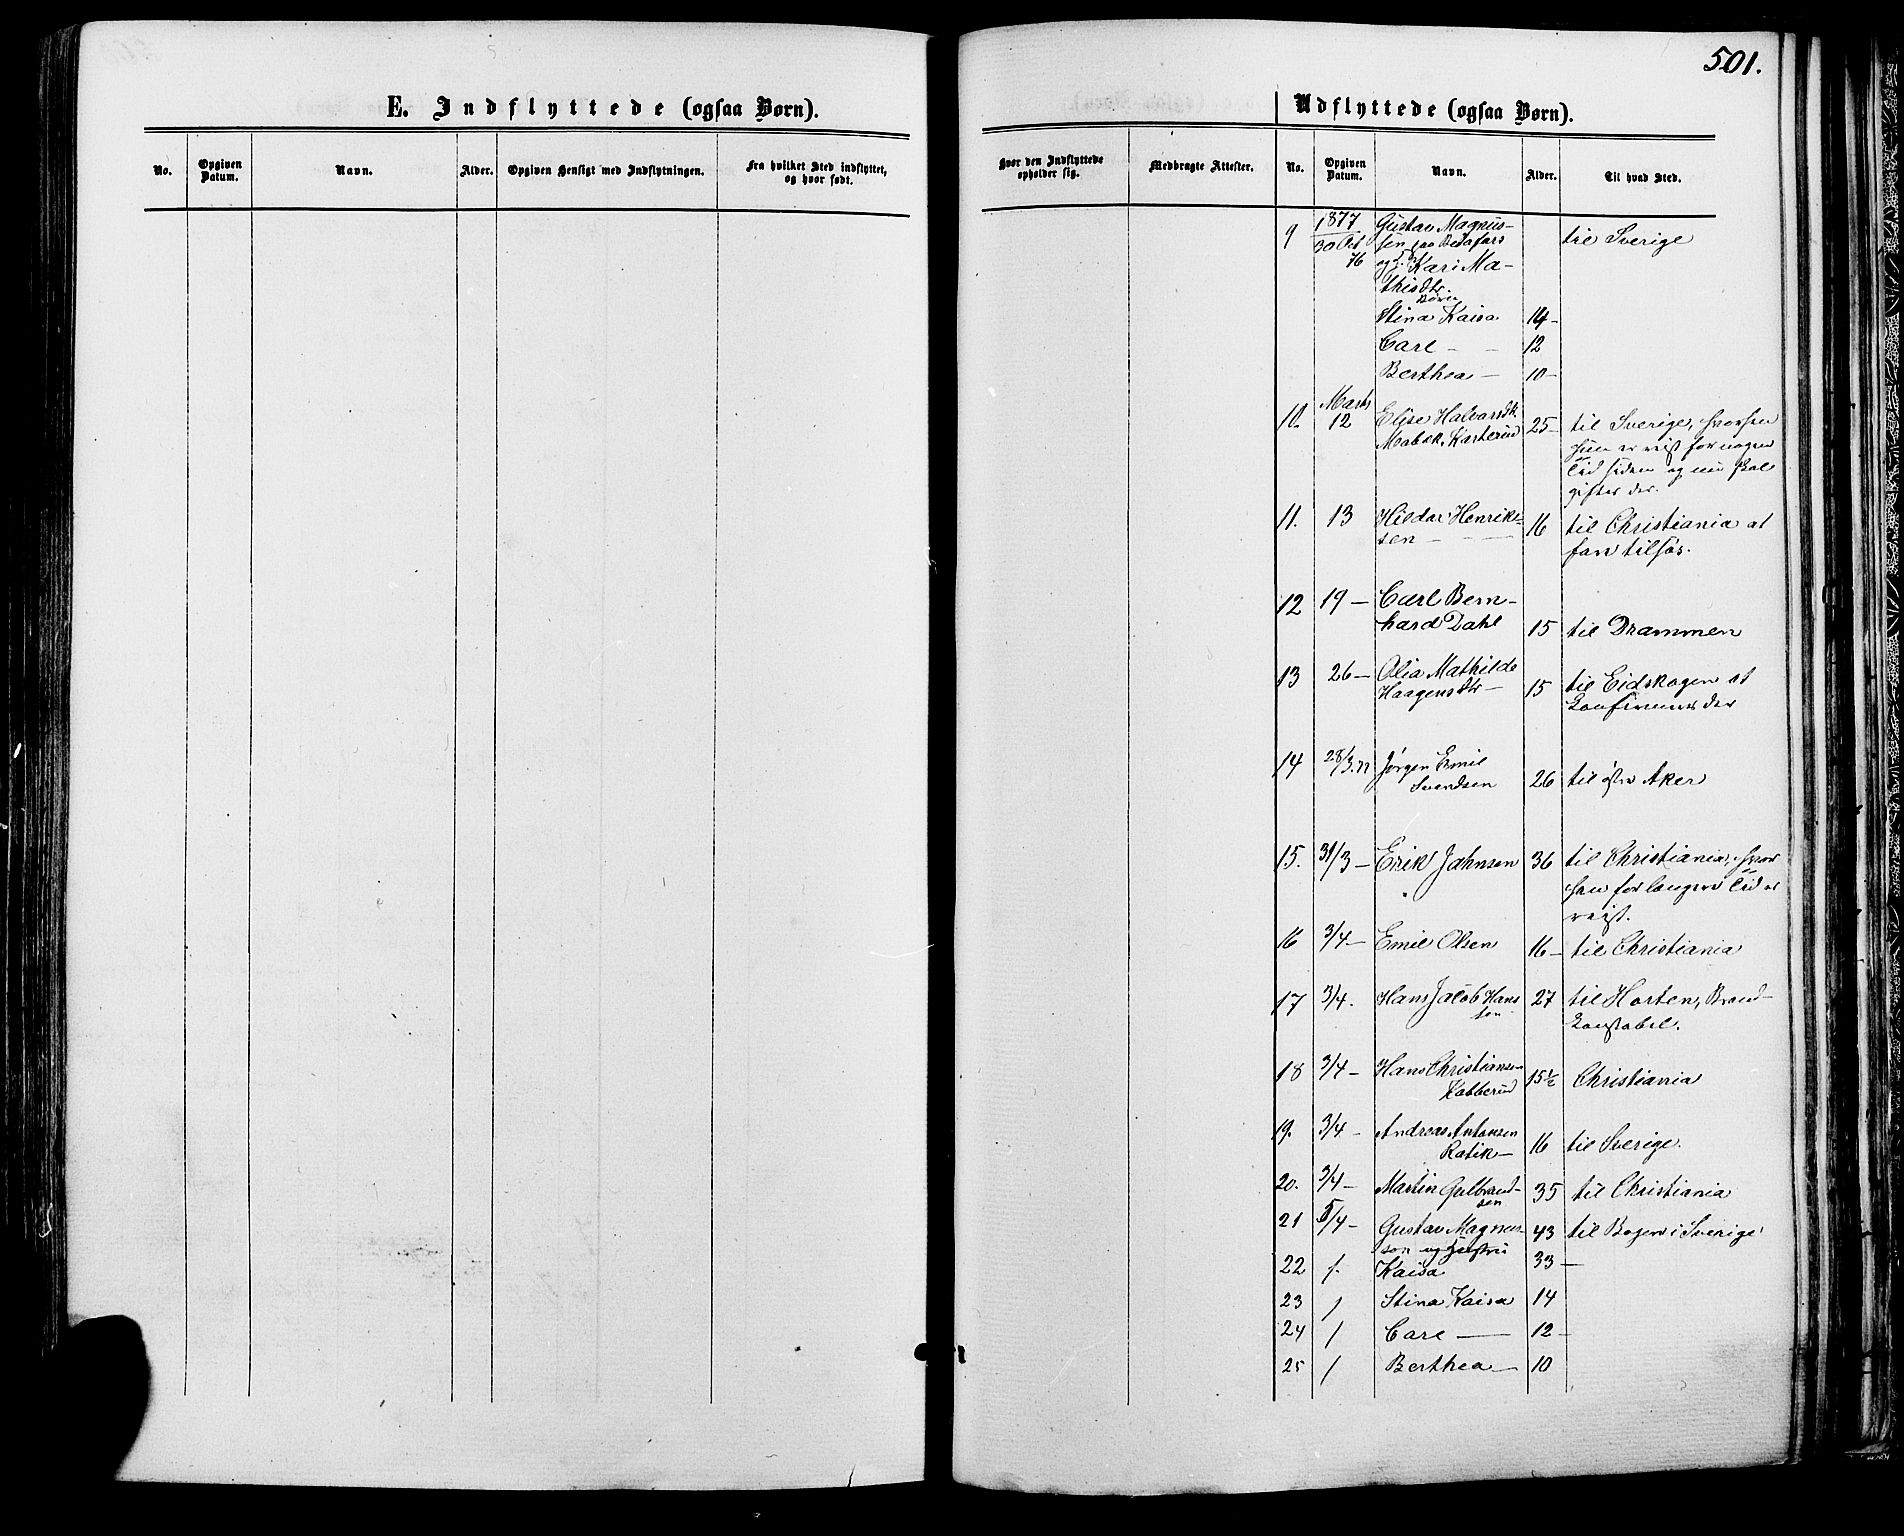 501.
E. Indflyttede (ogsaa Børn).
No.
Opgiven Datum.
Navn.
Alder.
Opgiven Hensigt med Indflytningen.
Fra hvilket Sted indflyttet, og hvor født.
Udflyttede (ogsaa Børn).
Hvor den Indflyttede opholder sig.
Medbragte Attester.
No.
Opgiven Datum.
Navn.
Alder.
Til hvad Sted.
9 1877 Gustav Magnus- til Sverige
30 Oct 76 sen
og Kari Ma-
thisdtr.
Børn
Stina Kaisa 14 -
Carl - - 12
Berthea - 10 -
10. Marts 12 Elise Halvorsdtr. 25 - til Sverige, hvorhen
Kasterud hun er reist for nogen
Tid siden og nu skal
giftes der.
11. 13 Hildar Henrik- 16 til Christiania at
sen - fare tilsøs.
12 19 - Carl Bern-
hard Dahl 15 til Drammen
13 26 - Olia Mathilde
Haagensdtr - 15 til Eidskogen at
konfirmeres der
14 28/3.77 Jørgen Emil
Svendsen 26 til østre Aker
15. 31/3 - Erik Johnsen 36 til Christiania, hvor
han for længere Tid er
reist.
16 3/4 - Emil Olsen 16 - til Christiania
17 3/4. Hans Jacob Hans 27 til Horten, Brand-
sen konstabel.
18 3/4 - Hans Christiansen
Kabberud 15 1/2 Christiania
19. 3/4 - Andreas Antonsen
Ratik - 16 til Sverige.
20. 3/4 - Martin Gulbrand- 35 til Christiania
sen
21 5/4 - Gustav Magnus- 43 til Bogen i Sverige
son og Hustru
22 /. Kaisa 33 -
23 / Stina Kaisa 14
24 / Carl - 12 -
25 / Berthea - 10